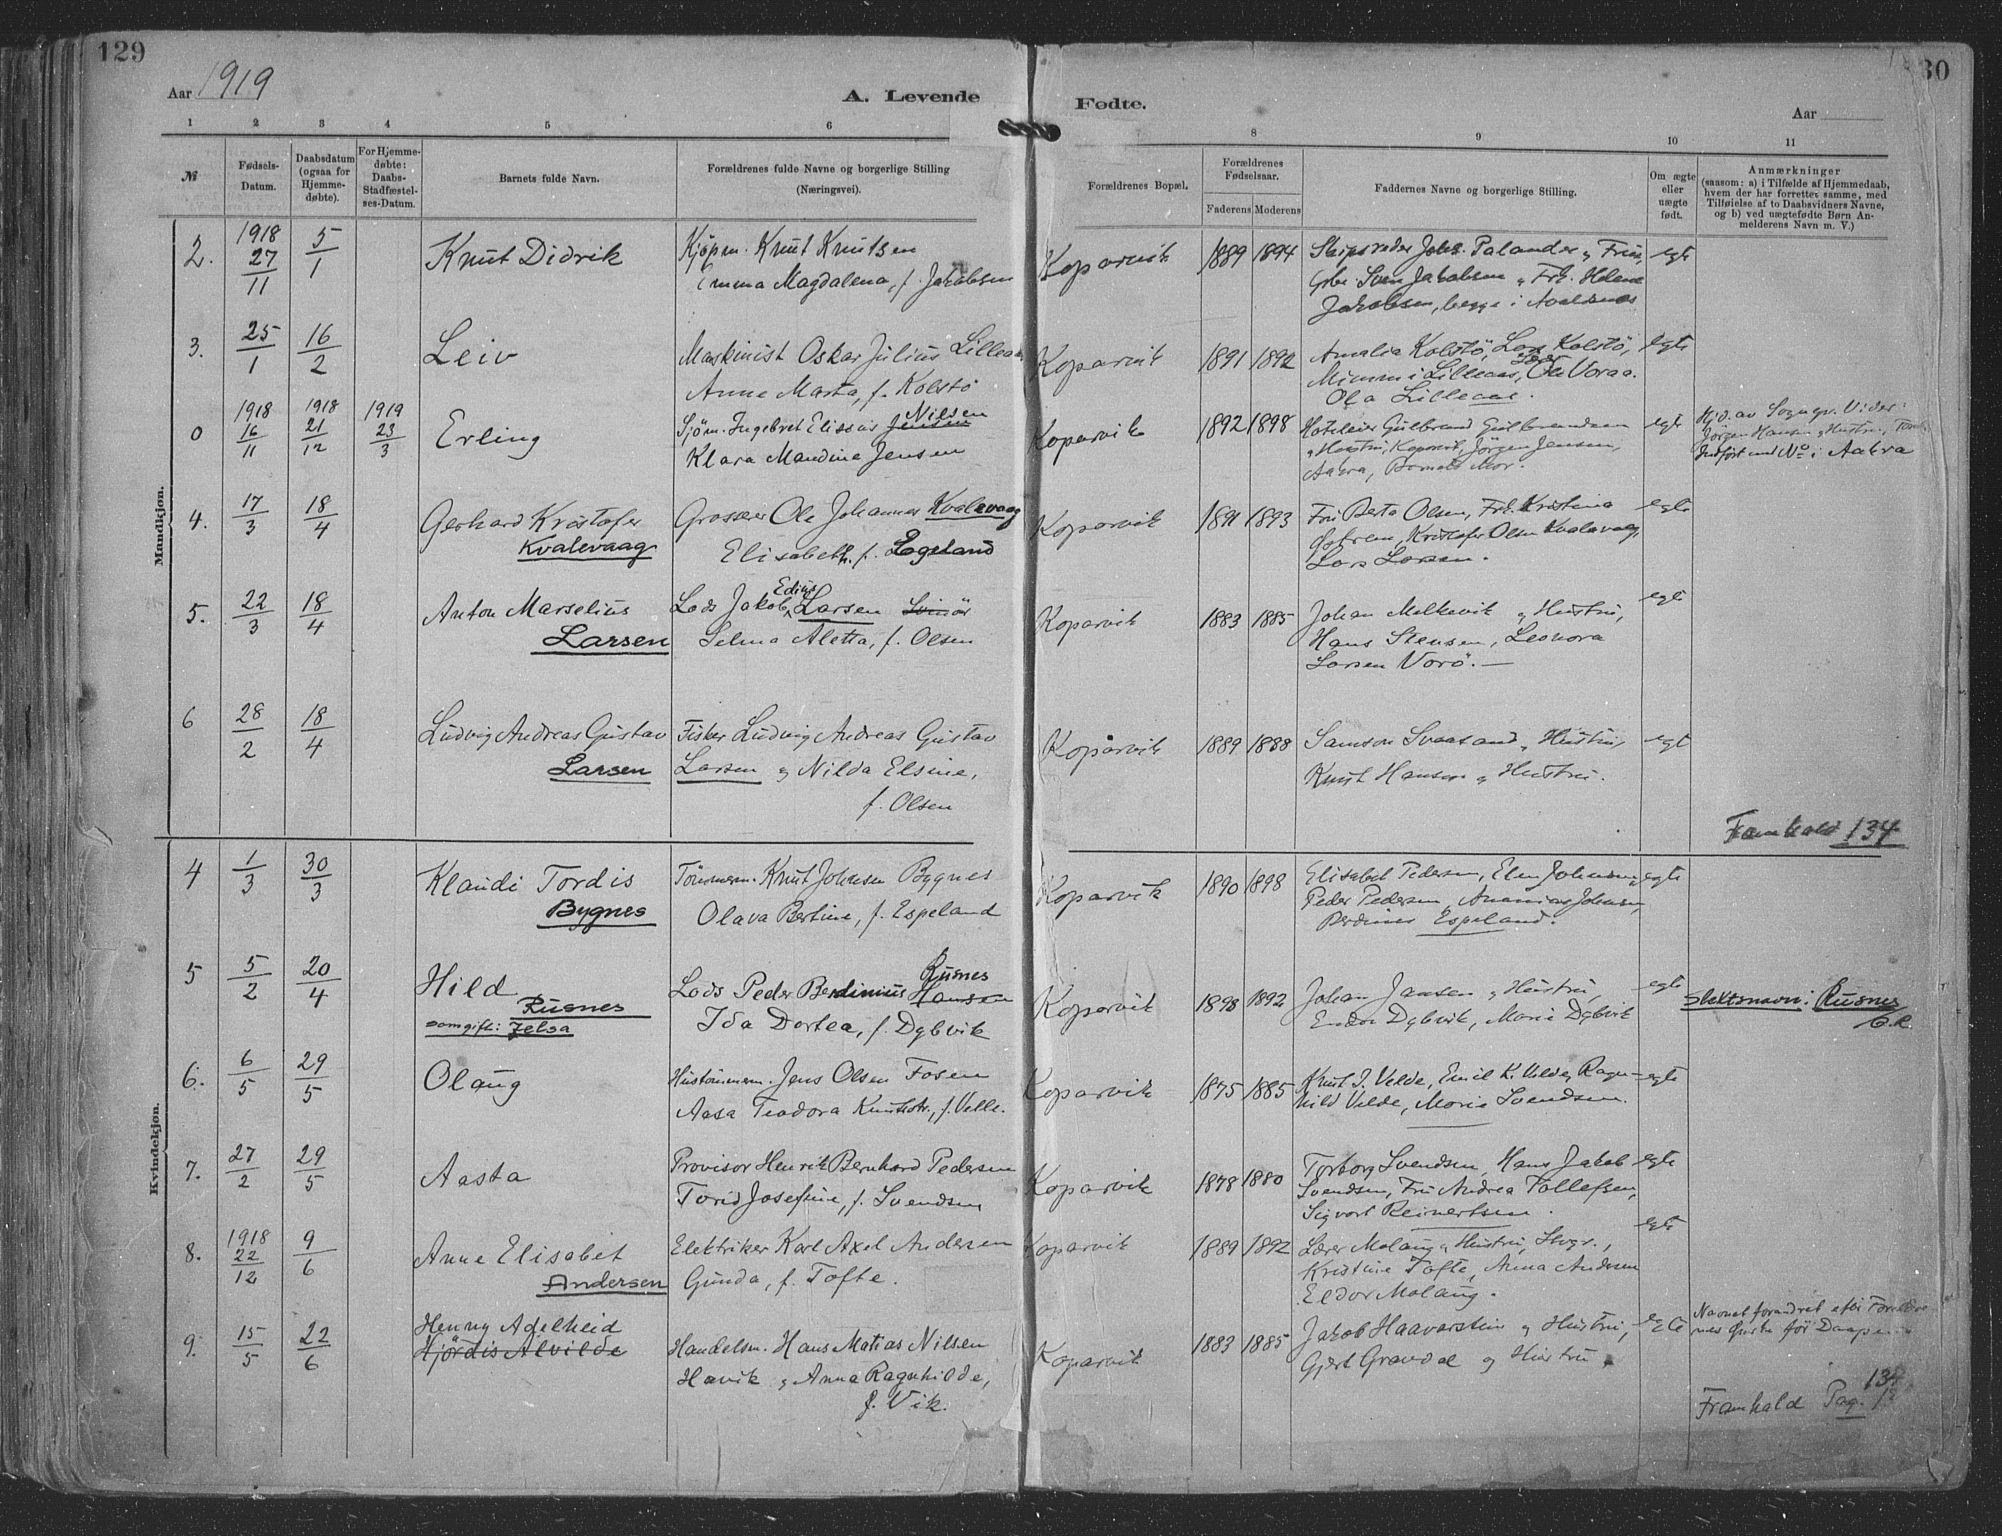 129
Aar 1919
A. Levende
Fødte.
30
Aar
1 2 3 4 5 6 7 8 9 10 11
№
Fødsels-
Datum.
Daabsdatum
(ogsaa for
Hjemme-
døbte).
For Hjemme-
døbte:
Daabs-
Stadfæstel-
ses-Datum.
Barnets fulde Navn.
Forældrenes fulde Navne og borgerlige Stilling
(Næringsvei).
Forældrenes Bopæl.
Forældrenes
Fødselsaar.
Faderens Moderens
Faddernes Navne og borgerlige Stilling.
Om ægte
eller
uægte
født.
Anmærkninger
(saasom: a) i Tilfælde af Hjemmedaab,
hvem der har forrettet samme, med
Tilføielse af to Daabsvidners Navne,
og b) ved uægtefødte Børn An-
melderens Navn m. V.)
Mandkjøn.
2. 1918 27/11 5/1 Knut Didrik
Kjøpm. Knut Knutsen
Emma Magdalena, f. Jakobsen
Koparvik 1889 1894
Skipsreder Johs. Palander Frue,
Sven Jakobsen, Frk. Helene
Jakobsen, begge i Avaldsnes
egte
3. 25/1 16/2 Leiv
Maskinist Oskar Julius Lilleaas
Anne Marta, f. Kolstø
Koparvik 1891 1892
Amalia Kolstø, Lars Kolstø,
Mimmi Lilleaas, Ole Voraa.
Ola Lilleaas.
egte
0 1918 16/11 1918 21/12 1919 23/3 Erling
Nilsen
Sjøm. Ingebret Elissæus Jensen
Klara Mandine Jensen
Koparvik 1892 1898
Hoteleier Gulbrand Gulbrandsen
Hustru, Koparvik, Jørgen Jensen,
Aakra, Barnets Mor.
egte
Hjd. av Sogngpr. Vider:
Jørgen Hansen Hustru,
Indført med No i Aakra
4. 17/3 18/4 Gerhard Kristofer
Kvalevaag
Grosserer Ole Johannes Kvalevaag
Elisabeth, f. Egeland
Koparvik 1891 1893
Fru Berta Olsen, Frk. Kristina
Østrem, Kristofer Olsen Kvalavaag,
Lars Larsen.
egte
5. 22/3 18/4 Anton Marselius
Larsen
Edius
Lods Jakob Larsen Svinør
Selma Aletta, f. Olsen
Koparvik 1883 1885
Johan Melkevik og Hustru,
Hans Stensen, Leonora
Larsen Vorø.
egte
6 28/2 18/4 Ludvig Andreas Gustav
Larsen
Fisker Ludvig Andreas Gustav
Larsen og Nilda Elsine,
f. Olsen
Koparvik 1889 1888
Samson Svaasand, Hustru,
Knut Hansen og Hustru.
egte
Framhald 134
Kvindekjøn.
4 1/3 30/3 Klaudi Tordis
Bygnes
Tømmerm. Knut Johnsen Bygnes
Olava Bertine, f. Espeland
Koparvik 1890 1898
Elisabet Pedersen, Elen Johnsen,
Peder Pedersen, Ananias Johnsen,
Berdines Espeland.
egte
5 5/2 20/4 Hild
Rusnes
somgift: Jelsa
Rusnes
Lods Peder Berdinius Hansen
Ida Dortea, f. Dybvik
Koparvik 1898 1892
Johan Jansen og Hustru,
Endre Dybvik, Marie Dybvik
egte
Slektsnavn: Rusnes
6. 6/5 29/5 Olaug
Hustømmerm. Jens Olsen Fosen
Aasa Teodora Knutsdtr., f. Velle.
Koparvik 1875 1885
Knut J. Velde, Emil K. Velde, Ragn-
hild Velde, Marie Svendsen.
egte
7. 27/2 29/5 Aasta
Provisor Henrik Bernhard Pedersen
Torid Josefine, f. Svendsen
Koparvik 1878 1880
Torborg Svendsen, Hans Jakob
Svendsen, Fru Andrea Tollefsen,
Sigvart Reinertsen.
egte
8. 1918 22/12 9/6 Anne Elisabet
Andersen
Elektriker Karl Axel Andersen
Gunda, f. Tofte.
Koparvik 1889 1892
Lærer Malaug og Hustru,
Kristine Tofte, Anna Andersen
Eldor Malaug.
egte
9. 15/5 22/6 Henny Adelheid
Hjørdis Alvilde
Handelsm. Hans Matias Nilsen
Havik og Anna Ragnhilde,
f. Vik.
Koparvik 1883 1885
Jakob Haavarstein og Hustru,
Gjert Grøndal og Hustru.
egte
Navnet forandret efter Foreldre
nes Ønske før Daapen
134
Framhald Pag.